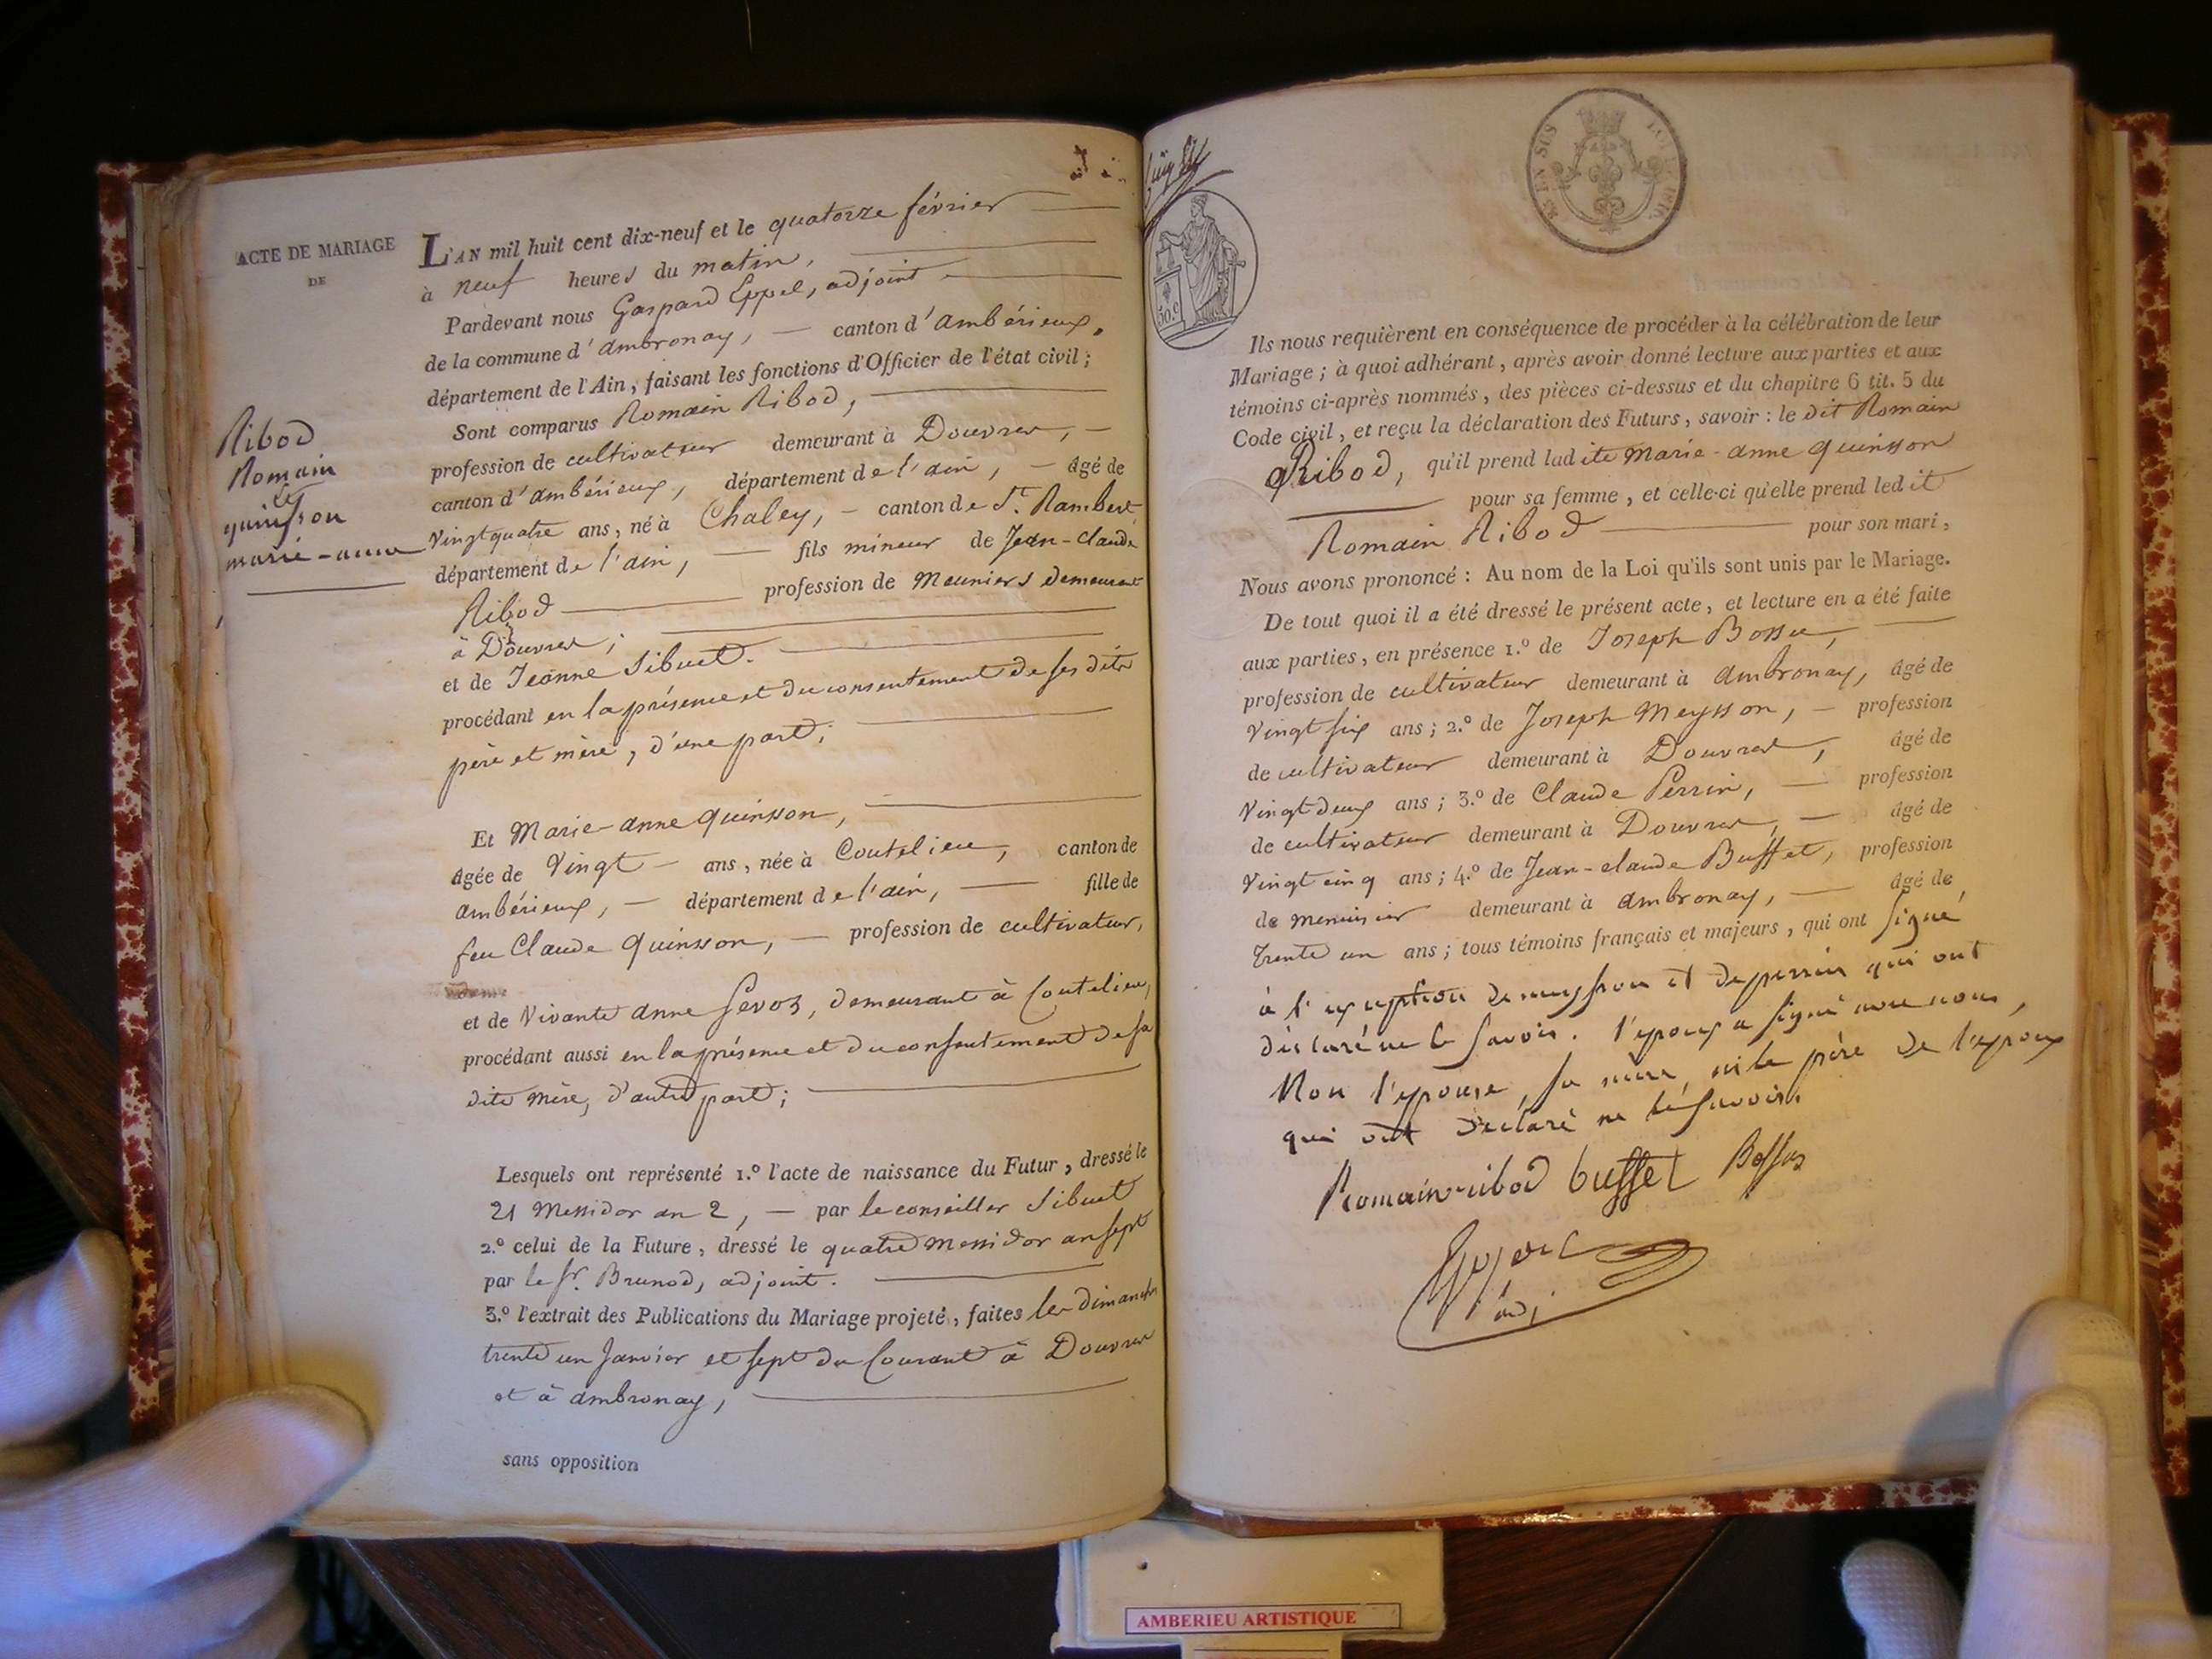 ACTE DE MARIAGE
DE
Ribod
Romain
et
quinsson
marie-anne
L'AN mil huit cent dix-neuf et le quatorze février
à neuf heures du matin,
Pardevant nous Gaspard Eppel, adjoint
de la commune d'ambronay, canton d'ambérieux,
département de l'Ain, faisant les fonctions d'Officier de l'état civil;
Sont comparus Romain Ribod,
profession de cultivateur demeurant à Douvres,
canton d'ambérieux, département de l'ain, âgé de
Vingt quatre ans, né à Chaley, canton de St. Rambert
département de l'ain, fils mineur de Jean-claude
Ribod profession de Meuniers demeurant
à Douvres;
et de Jeanne Sibuet.
procédant en la présence et du consentement de ses dits
père et mère, d'une part;
Et Marie-anne quinsson,
âgée de Vingt ans, née à Coutelieu, canton de
ambérieux, département de l'ain, fille de
feu Claude quinsson, profession de cultivateur,
et de Vivante anne Sevoz, demeurant à Coutelieu,
procédant aussi en la présence et du consentement de sa
dite mère, d'autre part;
Lesquels ont représenté 1.º l'acte de naissance du Futur, dressé le
21 Messidor an 2, par le conseiller Sibuet
2.º celui de la Future, dressé le quatre messidor an sept
par le Sr. Brunod, adjoint.
3.º l'extrait des Publications du Mariage projeté, faites les dimanches
trente un Janvier et sept du Courant à Douvres
et à ambronay,
sans opposition
50.C
Ils nous requièrent en conséquence de procéder à la célébration de leur
Mariage; à quoi adhérant, après avoir donné lecture aux parties et aux
témoins ci-après nommés, des pièces ci-dessus et du chapitre 6 tit. 5 du
Code civil, et reçu la déclaration des Futurs, savoir: le dit Romain
Ribod, qu'il prend ladite Marie-anne quinsson
pour sa femme, et celle-ci qu'elle prend ledit
Romain Ribod pour son mari,
Nous avons prononcé: Au nom de la Loi qu'ils sont unis par le Mariage.
De tout quoi il a été dressé le présent acte, et lecture en a été faite
aux parties, en présence 1.º de Joseph Bossu,
profession de cultivateur demeurant à ambronay, âgé de
Vingt six ans; 2.º de Joseph Meysson, profession
de cultivateur demeurant à Douvres, âgé de
Vingt deux ans; 3.º de Claude Perrin, profession
de cultivateur demeurant à Douvres, âgé de
Vingt cinq ans; 4.º de Jean-claude Buffet, profession
de menuisier demeurant à ambronay, âgé de
Trente un ans; tous témoins français et majeurs, qui ont signé
à l'exception de meysson et de perrin qui ont
déclaré ne le savoir. l'epoux a signé avec nous,
Non l'epouse, sa mère, ni le père de l'epoux
qui ont déclaré ne le savoir.
Romain ribod buffet Bossus
adj
AMBERIEU ARTISTIQUE